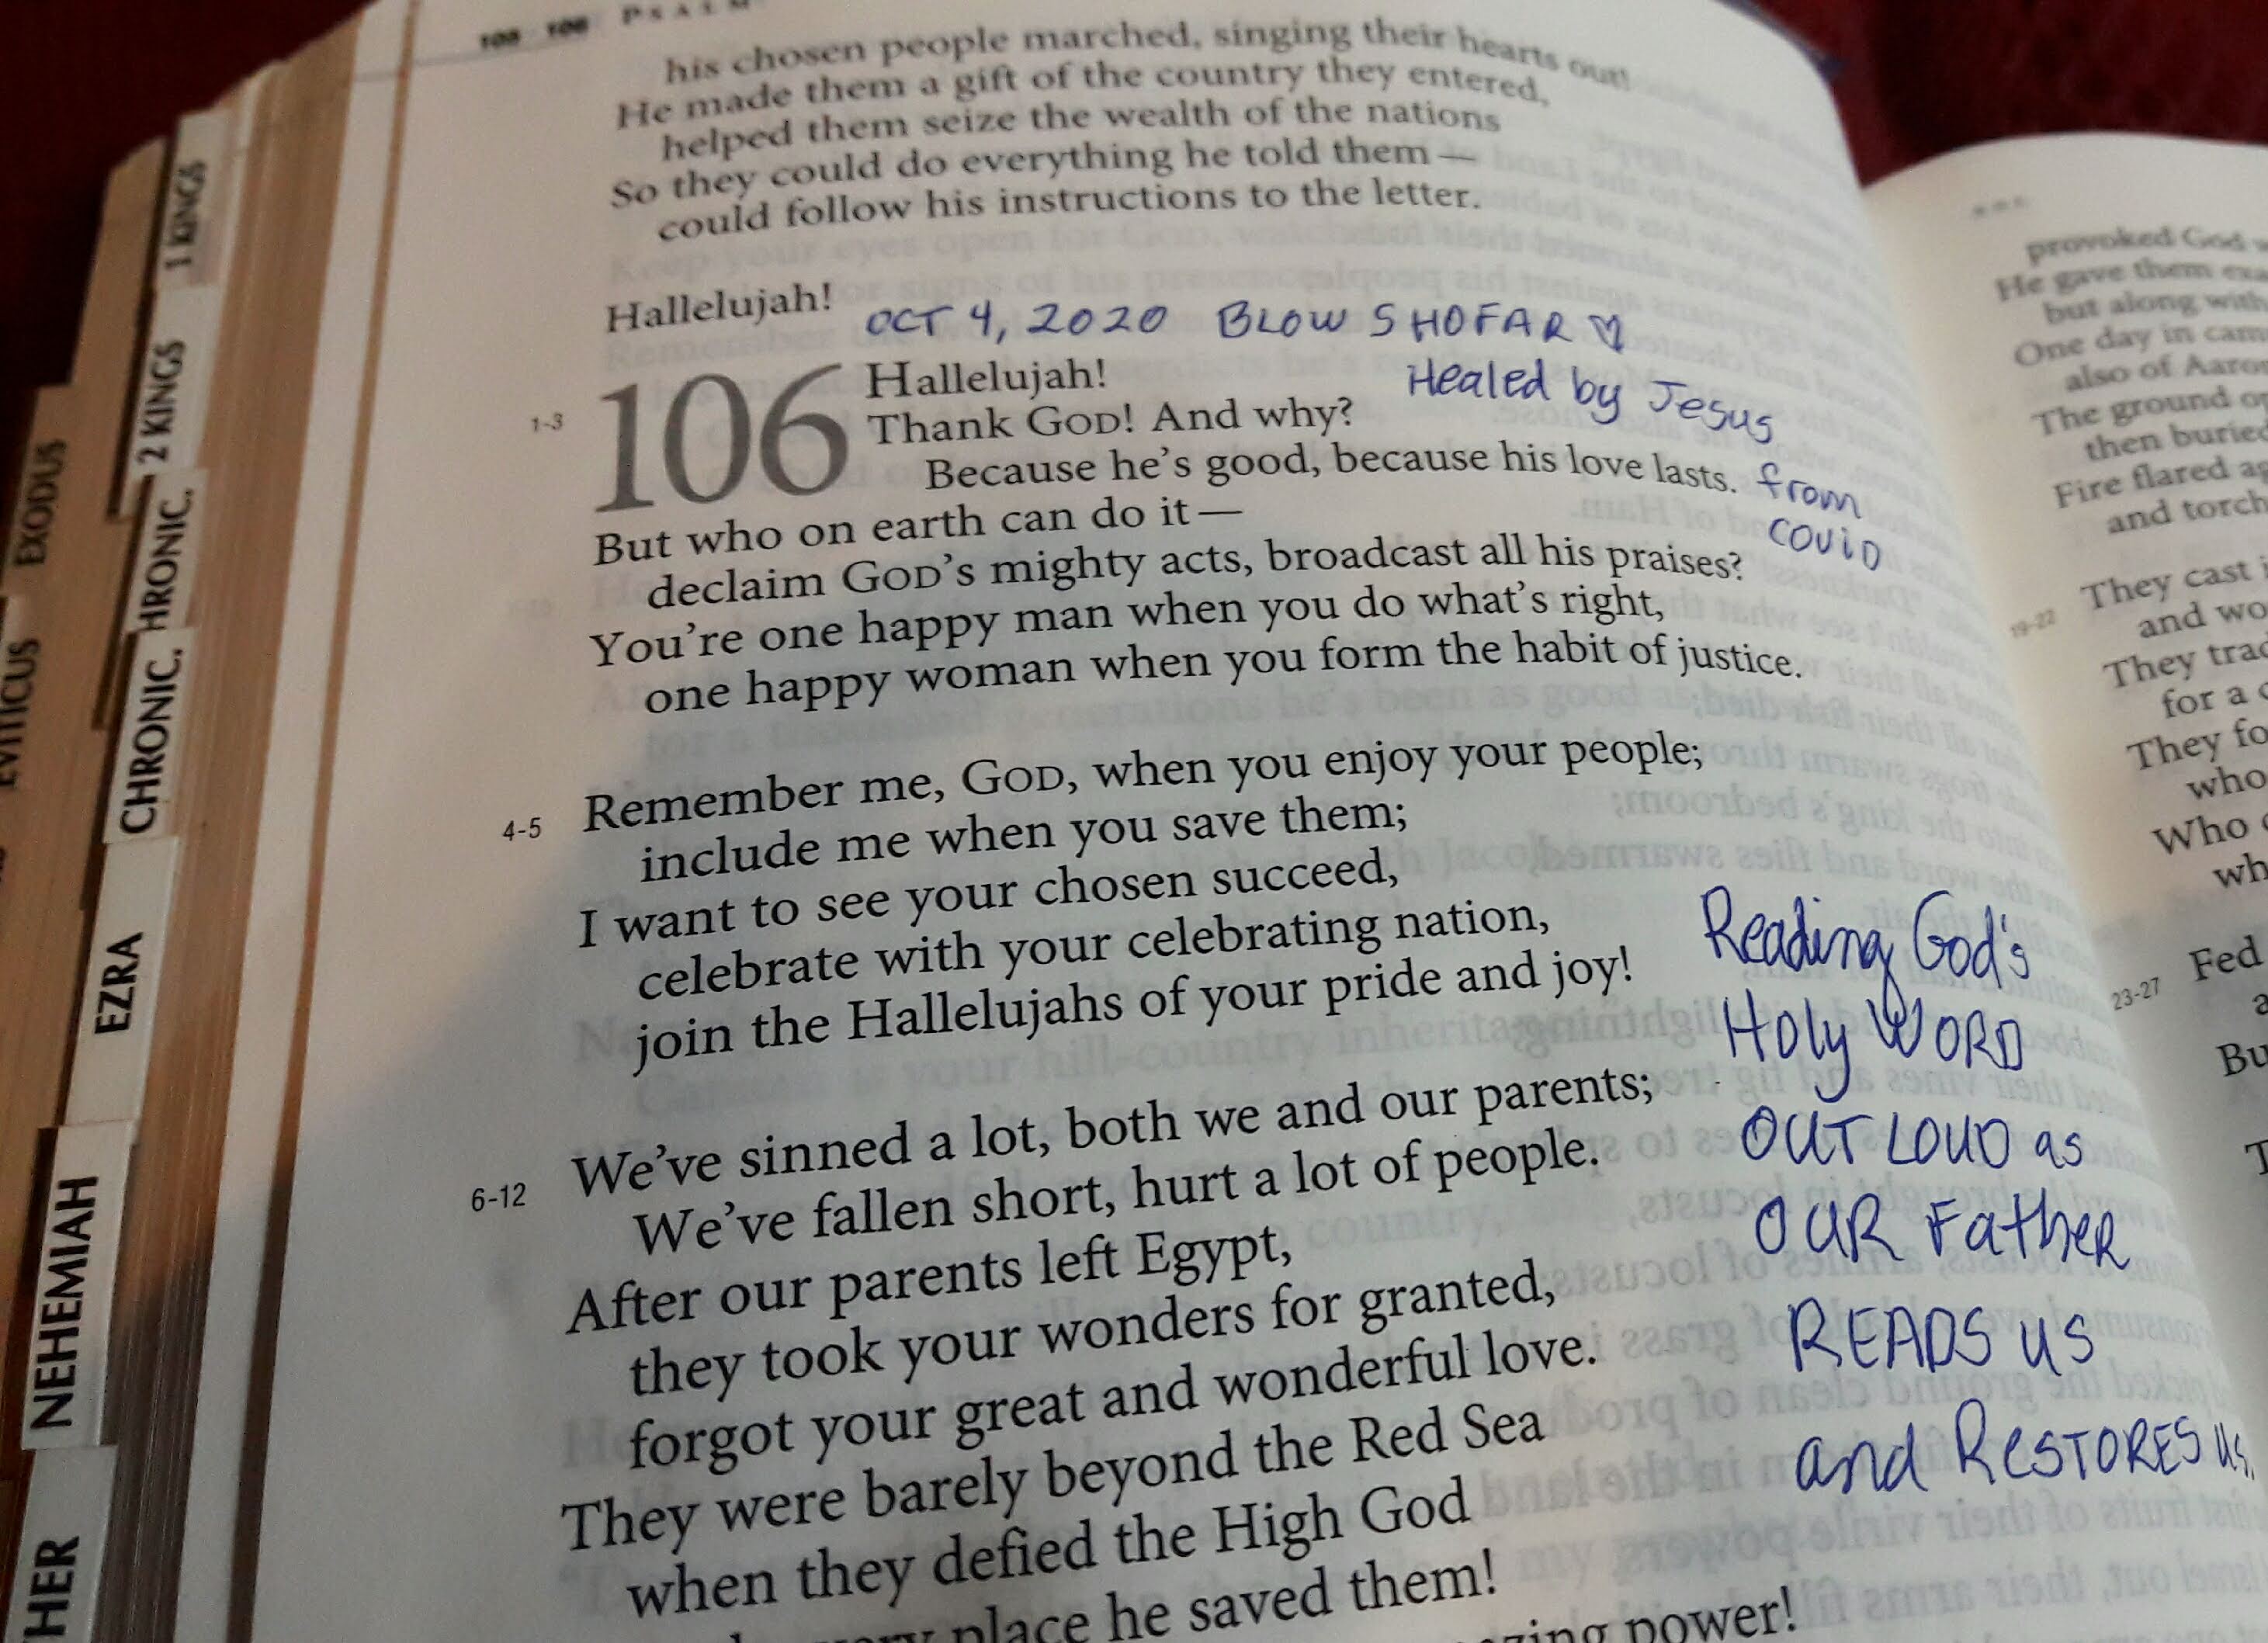 PSALM
his chosen people marched, singing their hearts out!
He made them a gift of the country they entered,
helped them seize the wealth of the nations
So they could do everything he told them—
could follow his instructions to the letter.
Hallelujah!
OCT 4, 2020 BLOW SHOFAR ♡
106
1-3
Hallelujah!
Healed by Jesus
Thank GOD! And why?
Because he's good, because his love lasts.
from
COViD
But who on earth can do it—
declaim GOD's mighty acts, broadcast all his praises?
You're one happy man when you do what's right,
one happy woman when you form the habit of justice.
4-5
Remember me, GOD, when you enjoy your people;
include me when you save them;
I want to see your chosen succeed,
celebrate with your celebrating nation,
join the Hallelujahs of your pride and joy!
Reading God's
Holy WORD
OUT LOUD as
OUR FatheR
READS us
and ReSTORES us.
6-12
We've sinned a lot, both we and our parents;
We've fallen short, hurt a lot of people.
After our parents left Egypt,
they took your wonders for granted,
forgot your great and wonderful love.
They were barely beyond the Red Sea
when they defied the High God
place he saved them!
power!
provoked God
He gave them
but along with
One day in
also of
The ground
then buried
Fire flared
and
19-22
They cast
and
They
for a
They
who
Who
23-27
Fed
1 KINGS
2 KINGS
CHRONIC.
EXODUS
EZRA
NEHEMIAH